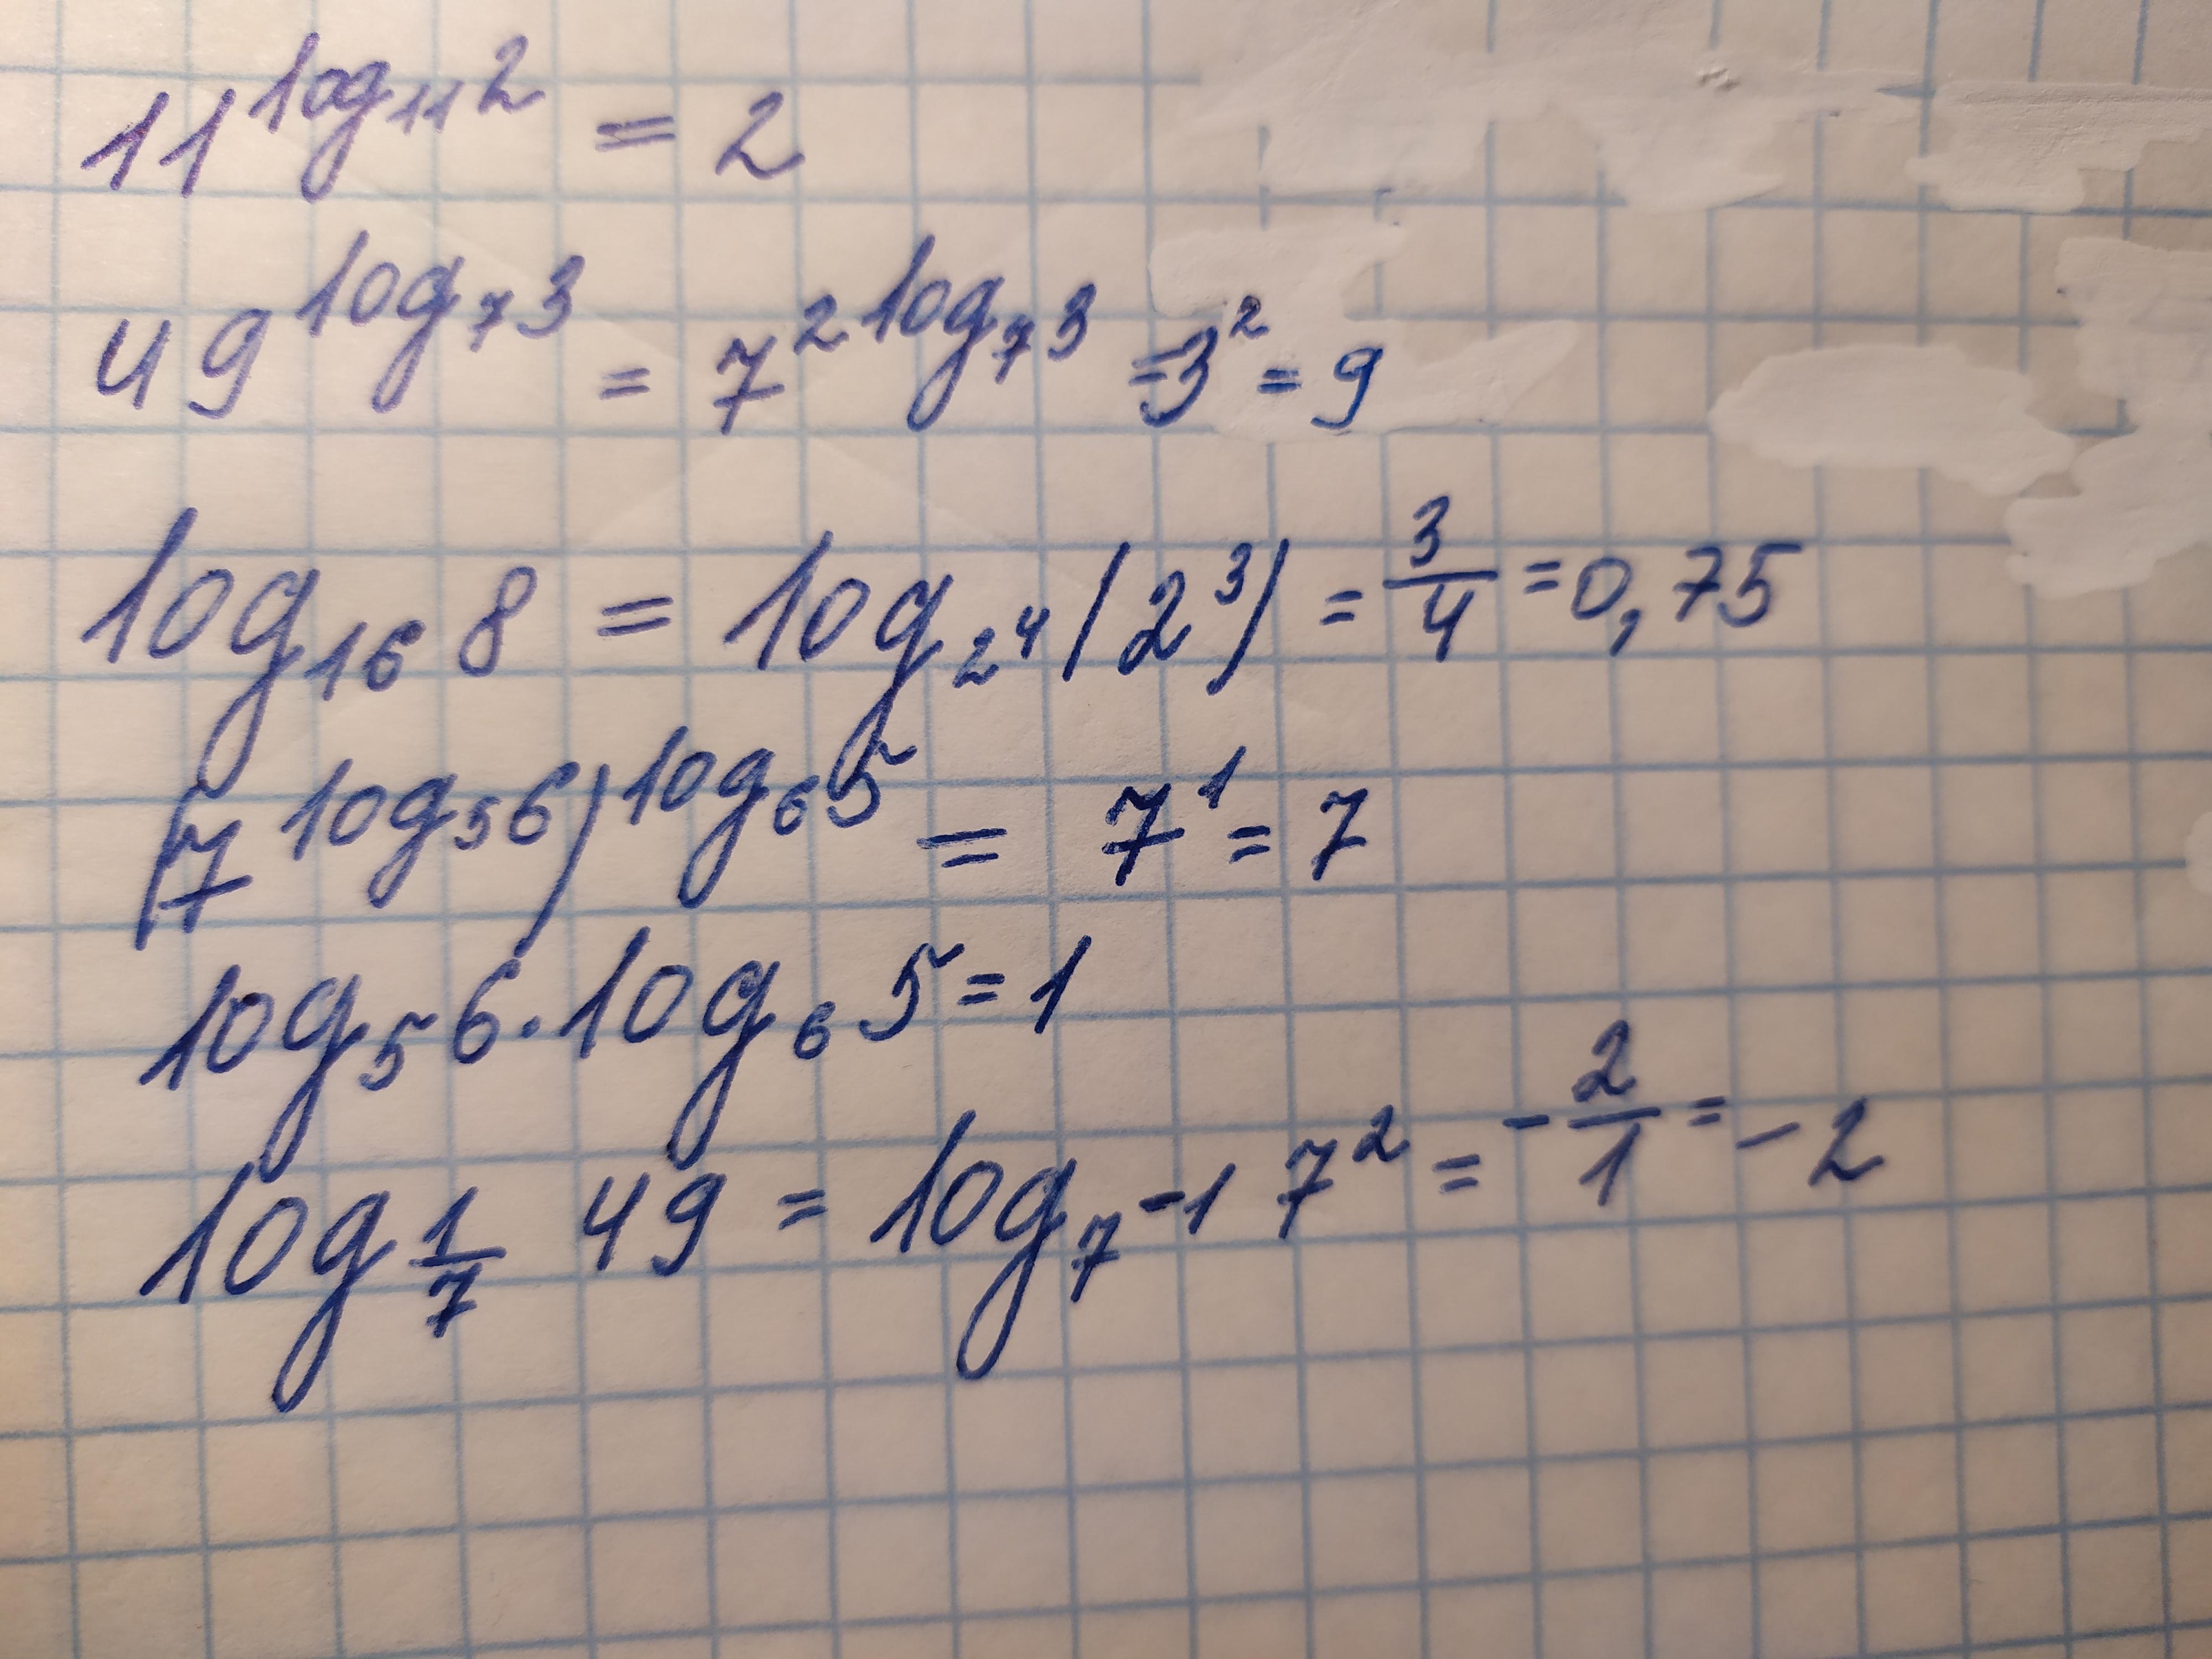 11^{log_{11} 2} = 2
49^{log_7 3} = 7^{2 log_7 3} = 3^2 = 9
log_{16} 8 = log_{2^4} (2^3) = \frac{3}{4} = 0,75
(7^{log_5 6})^{log_6 5} = 7^1 = 7
log_5 6 · log_6 5 = 1
log_{\frac{1}{7}} 49 = log_{7^{-1}} 7^2 = -\frac{2}{1} = -2